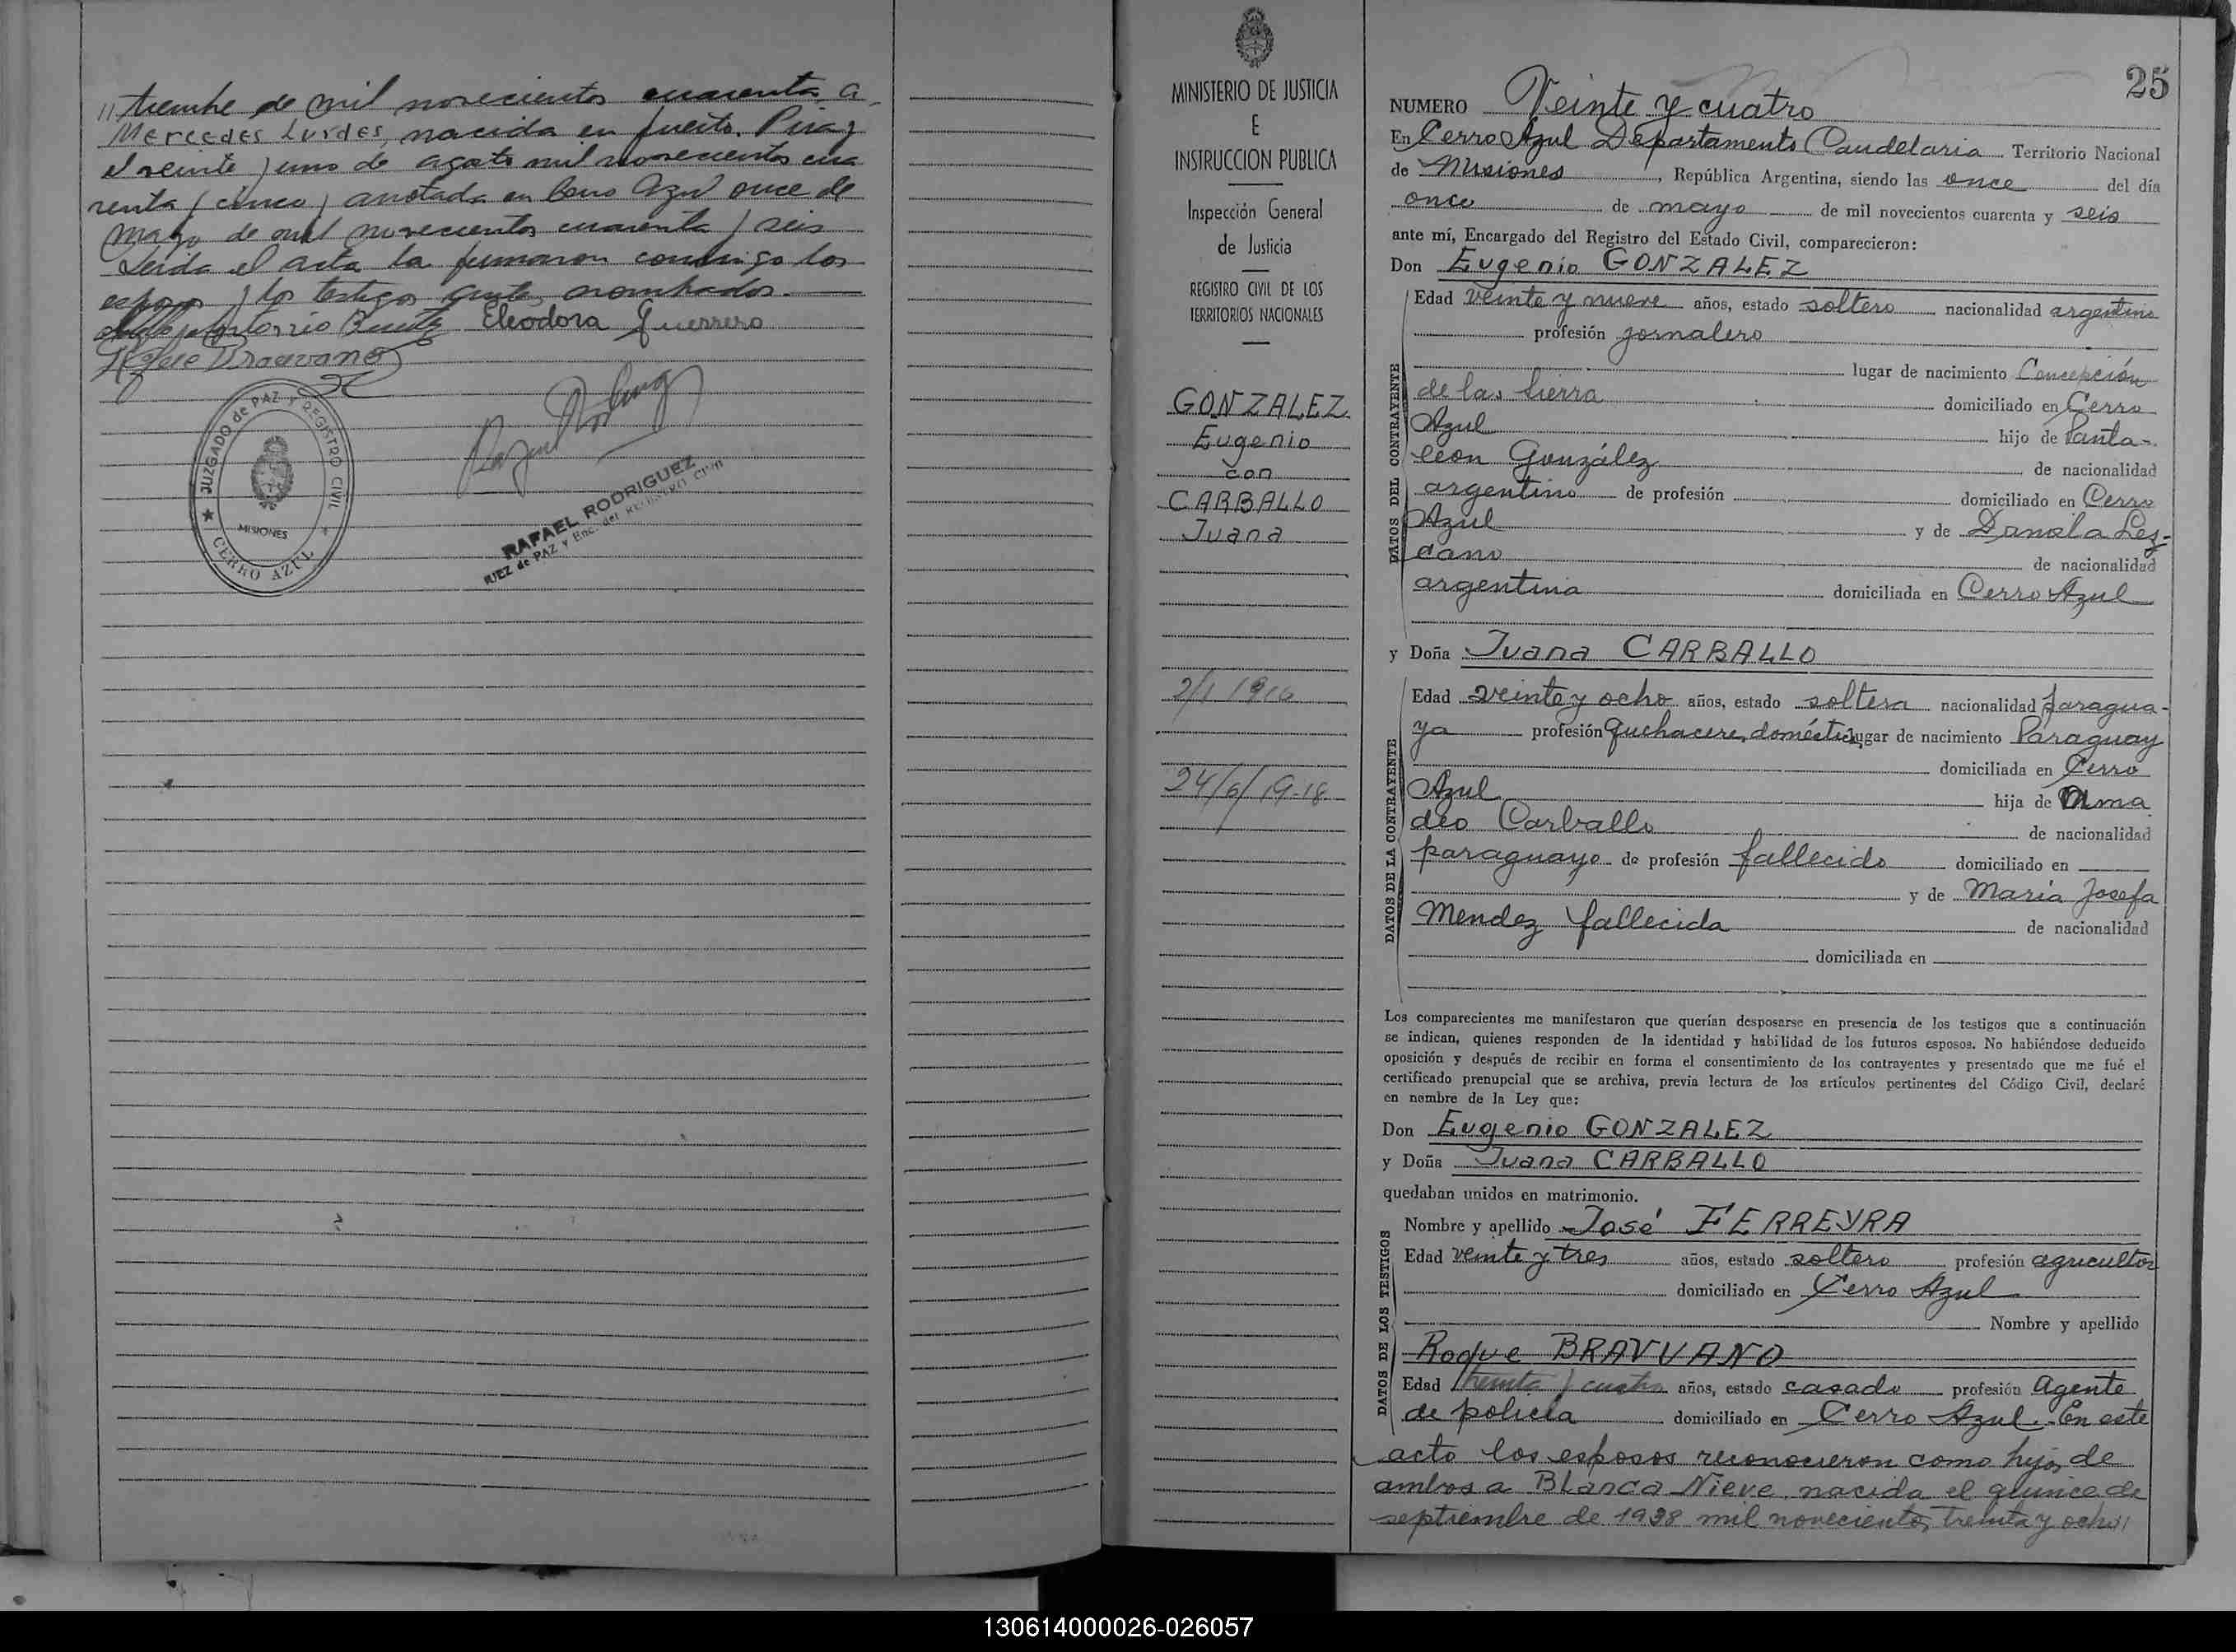 // tiembre de mil novecientos cuarenta a
Mercedes Lurdes, nacida en Puerto
el veinte y uno de agosto mil novecientos cua
renta y cinco, anotada en Cerro Azul once de
mayo de mil novecientos cuarenta y seis
Leida el acta la firmaron conmigo los
esposos y los testigos antes nombrados.
Antonio Eleodora Guerrero
JUZGADO de PAZ Y REGISTRO CIVIL
MISIONES
CERRO AZUL
RAFAEL RODRIGUEZ
JUEZ de PAZ Y Enc. del REGISTRO Civil
MINISTERIO DE JUSTICIA
E
INSTRUCCION PUBLICA
Inspección General
de Justicia
REGISTRO CIVIL DE LOS
TERRITORIOS NACIONALES
GONZALEZ
Eugenio
con
CARBALLO
Juana
2/1 1916
24/6/19-18
25
NUMERO Veinte y cuatro
En Cerro Azul Departamento Candelaria Territorio Nacional
de Misiones, República Argentina, siendo las once del día
once de mayo de mil novecientos cuarenta y seis
ante mí, Encargado del Registro del Estado Civil, comparecieron:
Don Eugenio GONZALEZ
DATOS DEL CONTRAYENTE
Edad veinte y nueve años, estado soltero nacionalidad argentino
profesión jornalero
lugar de nacimiento Concepción
de la sierra domiciliado en Cerro
Azul hijo de Panta-
leon González de nacionalidad
argentino de profesión domiciliado en Cerro
Azul y de Lez-
cano de nacionalidad
argentina domiciliada en Cerro Azul
y Doña Juana CARBALLO
DATOS DE LA CONTRAYENTE
Edad veinte y ocho años, estado soltera nacionalidad paragua-
ya profesión quehaceres domésticos lugar de nacimiento Paraguay
domiciliada en Cerro
Azul hija de Ama
deo Carballo de nacionalidad
paraguayo de profesión fallecido domiciliado en
y de María Josefa
Mendez fallecida de nacionalidad
domiciliada en
Los comparecientes me manifestaron que querían desposarse en presencia de los testigos que a continuación
se indican, quienes responden de la identidad y habilidad de los futuros esposos. No habiéndose deducido
oposición y después de recibir en forma el consentimiento de los contrayentes y presentado que me fué el
certificado prenupcial que se archiva, previa lectura de los artículos pertinentes del Código Civil, declaré
en nombre de la Ley que:
Don Eugenio GONZALEZ
y Doña Juana CARBALLO
quedaban unidos en matrimonio.
DATOS DE LOS TESTIGOS
Nombre y apellido José FERREYRA
Edad veinte y tres años, estado soltero profesión agricultor
domiciliado en Cerro Azul
Nombre y apellido
Roque BRAVUANO
Edad treinta y cuatro años, estado casado profesión agente
de policía domiciliado en Cerro Azul. En este
acto los esposos reconocieron como hijos de
ambos a Blanca Nieve, nacida el quince de
septiembre de 1938 mil novecientos treinta y ocho//
130614000026-026057